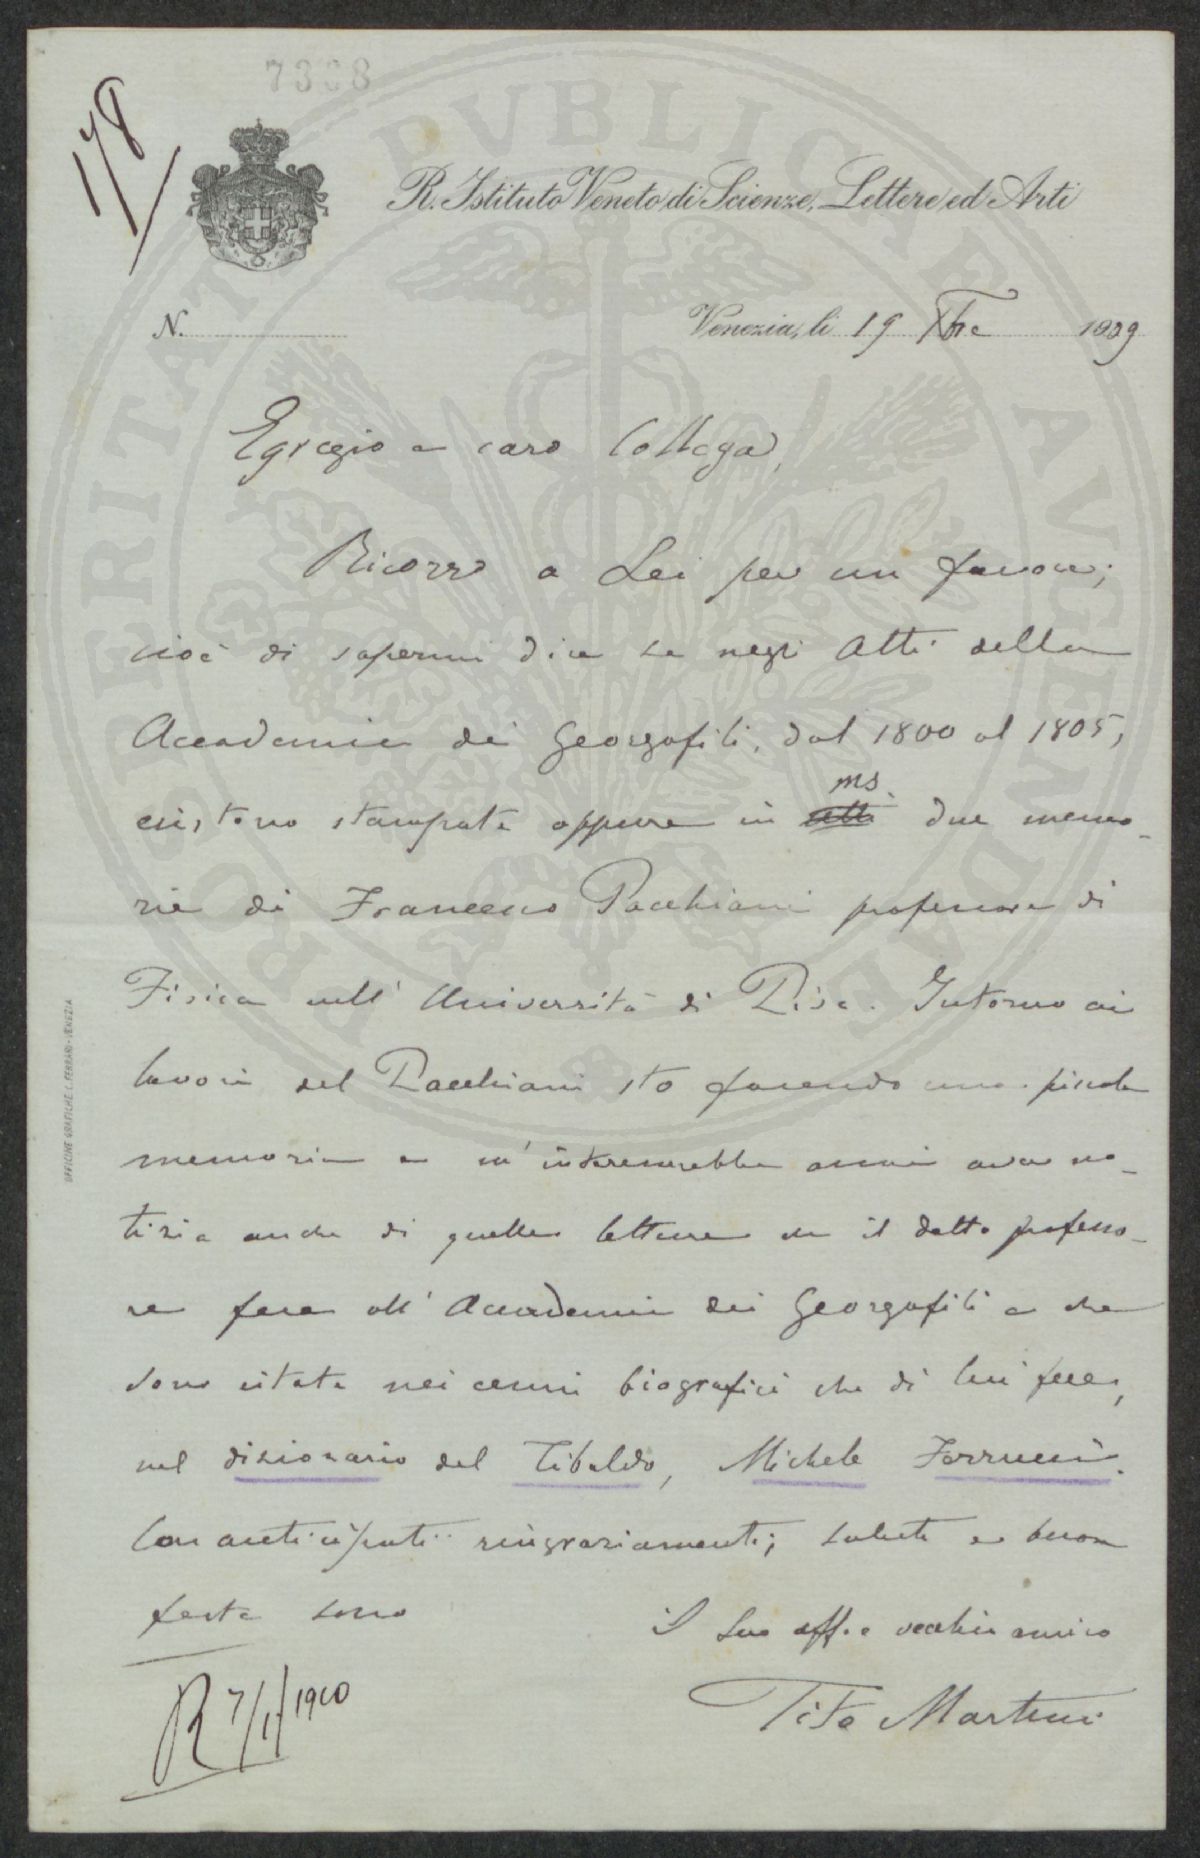 7388
178
R. Istituto Veneto di Scienze, Lettere ed Arti
N.
Venezia, li 19 Xbre 1909
Egregio e caro Collega,
Ricorro a Lei per un favore;
cioè di sapermi dire se negli Atti della
Accademia dei Georgofili, dal 1800 al 1805,
esistono stampate oppure in ms. due memo-
rie di Francesco Pacchiani professore di
Fisica nell' Università di Pisa. Intorno ai
lavori del Pacchiani sto facendo una piccola
memoria e m'interesserebbe assai aver no-
tizia anche di quelle letture che il detto professo-
re fece all' Accademia dei Georgofili e che
sono citate nei cenni biografici che di lui fece,
nel dizionario del Tibaldo, Michele Ferrucci.
Con anticipati ringraziamenti; saluti e buone
feste sono
il Suo aff.o vecchio amico
Tito Martini
R 7/1/1910
OFFICINE GRAFICHE C. FERRARI - VENEZIA
PROSPERITATI PVBLICAE AVGENDAE